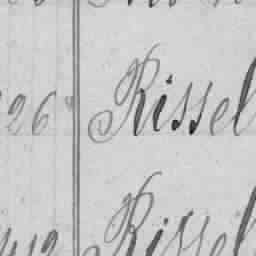 26 Rissel
412 Rissel